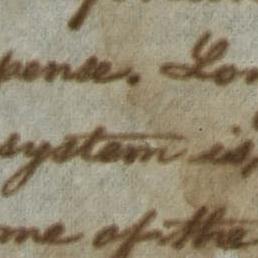 pense. Lon
system is,
me of the